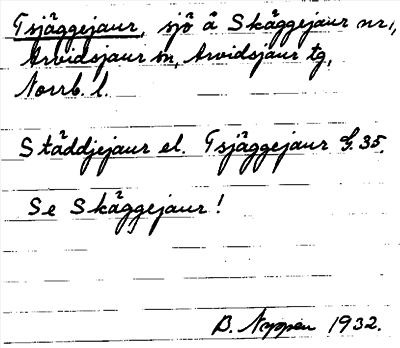 Tsjäggejaur, sjö å Skäggejaur nr 1,
Arvidsjaur sn, Arvidsjaur tg,
Norrb. l.
Städdjejaur el. Tsjäggejaur G. 35.
Se Skäggejaur!
B. 1932.